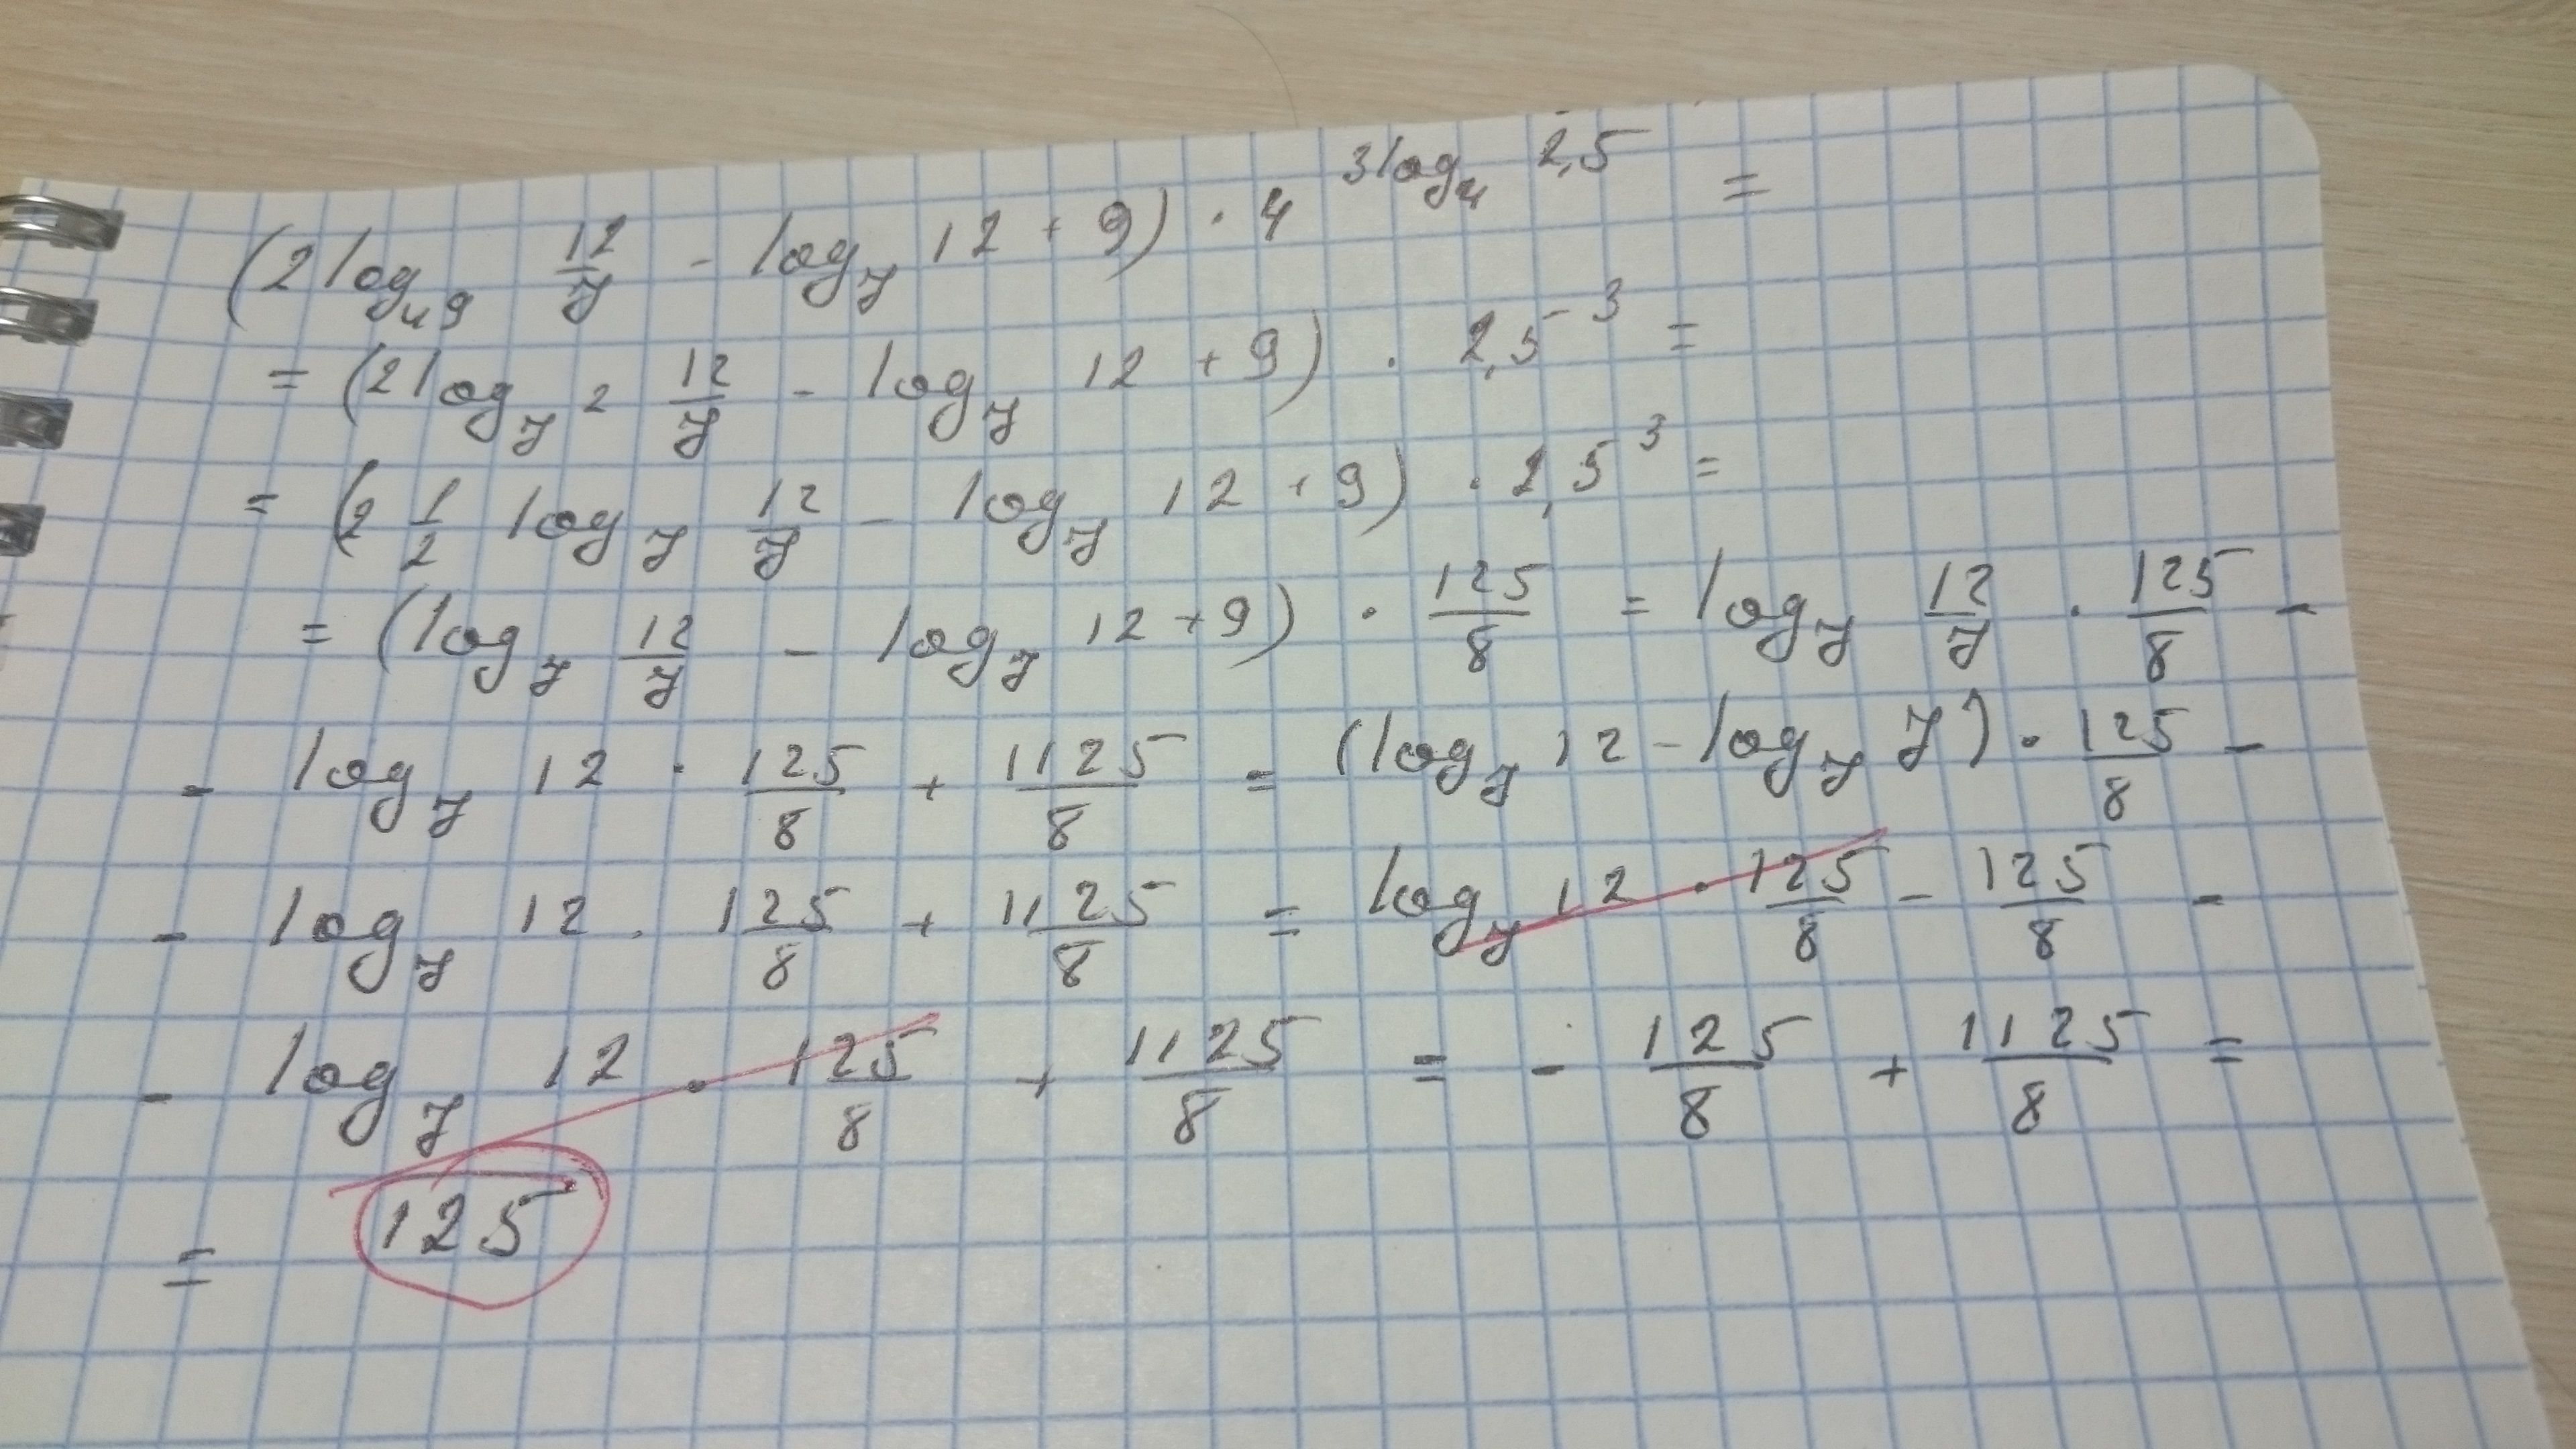 (2 log₄₉ 12/7 - log₇ 12 + 9) · 4^(3 log₄ 2,5) =
= (2 log₇2 12/7 - log₇ 12 + 9) · 2,5^3 =
= (2 1/2 log₇ 12/7 - log₇ 12 + 9) · 2,5^3 =
= (log₇ 12/7 - log₇ 12 + 9) · 125/8 = log₇ 12/7 · 125/8 -
- log₇ 12 · 125/8 + 1125/8 = (log₇ 12 - log₇ 7) · 125/8 -
- log₇ 12 · 125/8 + 1125/8 = log₇ 12 · 125/8 - 125/8 -
- log₇ 12 · 125/8 + 1125/8 = - 125/8 + 1125/8 =
= 125